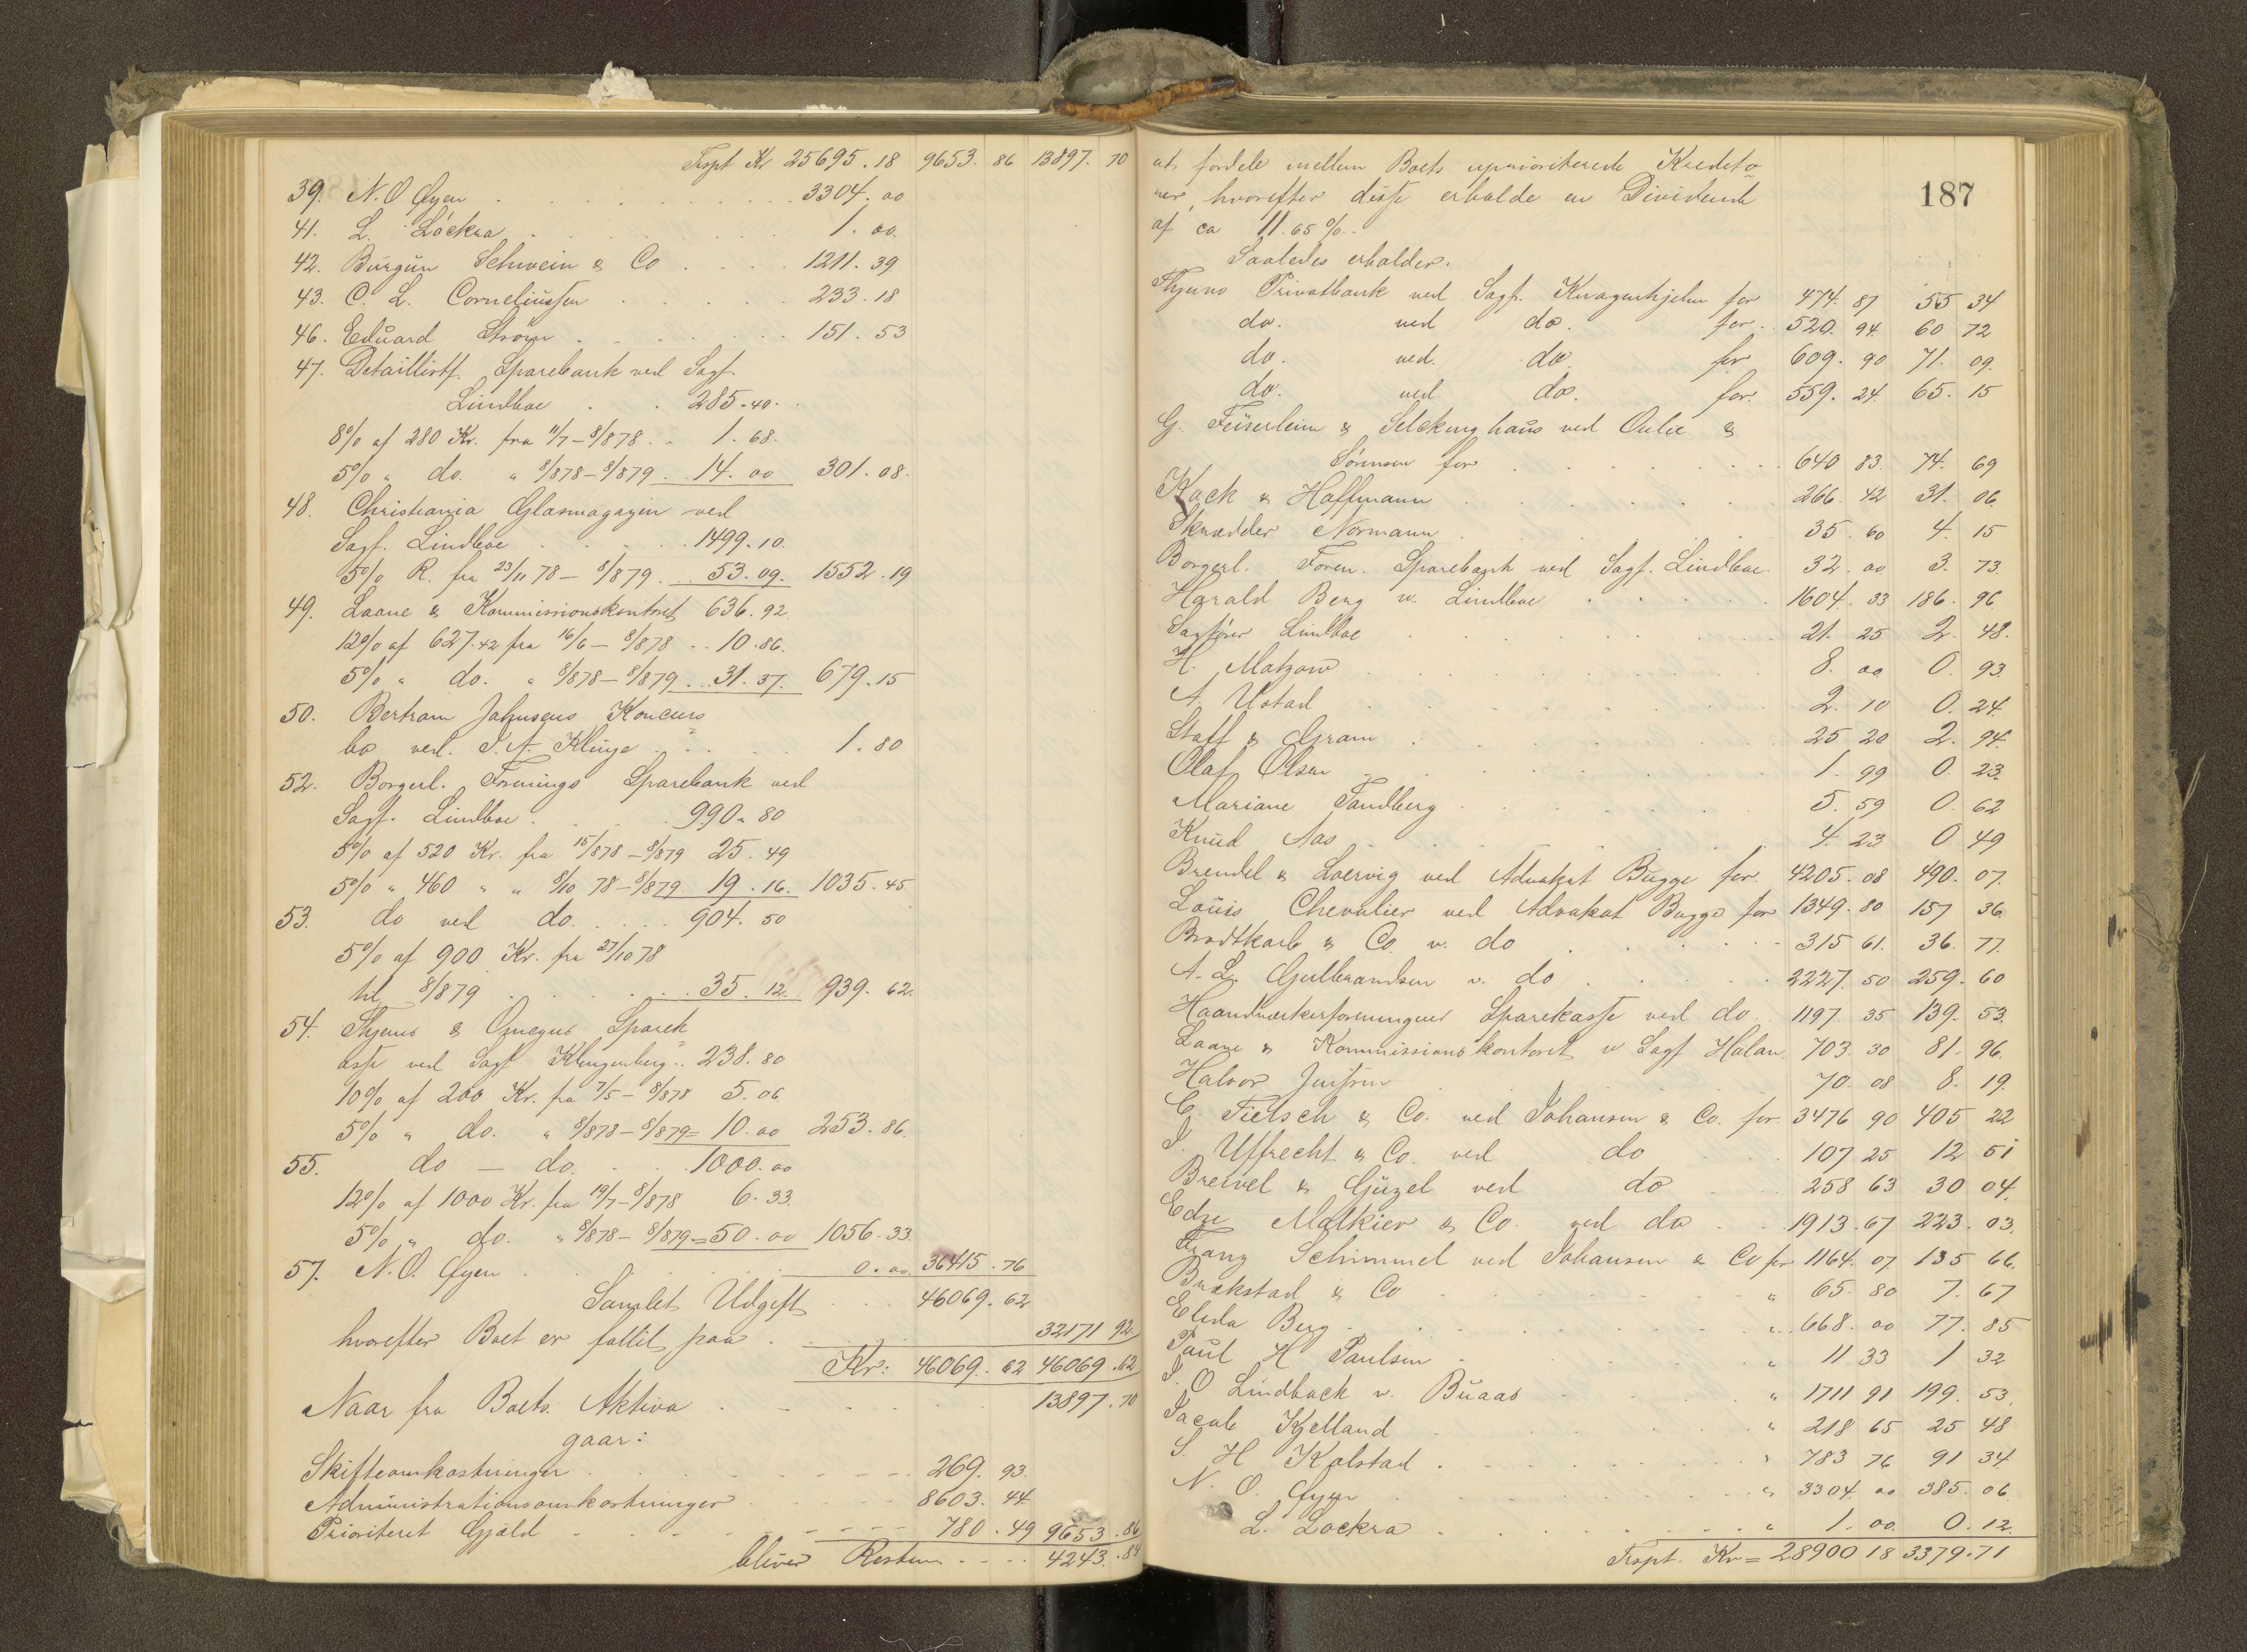 Trspt Kr 25695.18 9653.86 13897.70
39. N. O Øyen . . . 3304.00
41. L. Löckra . . . 1.00
42. Burgun Schwein & Co . . . 1211.39
43. C. L. Corneliussen . . . 233.18
46. Eduard Strøm . . . 151.53
47. Detaillistf. Sparebank ved Sagf.
Lindboe . . 285.40
8% af 280 Kr. fra 11/7-8/878 . . 1.68.
5% " do. " 8/878-8/879 . 14.00 301.08.
48. Christiania Glasmagazin ved
Sagf. Lindboe . . . 1499.10.
5% R. fra 23/11 78-8/879 . 53.09. 1552.19
49. Laane & Kommissionskontoret 636.92
12% af 627.42 fra 16/6-8/878 . . 10.86.
5% " do. " 8/878-8/879 . . 31.37. 679.15
50. Bertram Jahnsens Koncurs
bo ved. J. A. Klinge . . . 1.80
52. Borgerl. Forenings Sparebank ved
Sagf. Lindboe . . . 990.80
5% af 520 Kr. fra 15/878-8/879 25.49
5% " 460 " " 8/10 78-8/879 19.16. 1035.45
53. do ved do. . . . 904.50
5% af 900 Kr. fra 27/10 78
til 8/879 . . . 35.12. 939.62.
54. Thjems & Omegns Sparek
asse ved Sagf Klingenberg . . 238.80
10% af 200 Kr. fra 7/5-8/878 5.06
5% " do. " 8/878-8/879= 10.00 253.86.
55. do — do. . . 1000.00
12% af 1000 Kr. fra 19/7-8/878 6.33.
5% " do. " 8/878-8/879=50.00 1056.33.
57. N. O. Øyen . . . 0.00. 36415.76
Samlet Udgift . . . 46069.62
hvorefter Boet er fallit paa . . . 32171 92
Kr: 46069.62 46069.62
Naar fra Boets Aktiva . . . 13897.70
gaar:
Skifteomkostninger . . . 269.93.
Administrationsomkostninger . . . 8603.44
Prioriteret Gjæld . . . 780.49 9653.86
bliver Resten . . . 4243.84
187
at fordele mellem Boets uprioriterede Kredito
rer, hvorefter disse erholde en Dividende
af ca 11.65%.
Saaledes erholder.
Thjems Privatbank ved Sagf. Knagenhjelm for 474.87 55 34
do. ved do. for . 520.94 60 72
do. ved. do. for 609.90 71.09.
do. ved. do. for. 559.24 65.15
G. Feüserleim & Selckinghaus ved Oulie &
Sørensen for . . . 640 83. 74.69
Kock & Hoffmann . . . 266.42 31.06.
Skrædder Normann . . . 35.60 4.15
Borgerl. Foren. Sparebank ved Sagf. Lindboe. 32.00 3.73.
Harald Berg v. Lindboe . . . 1604.33 186.96.
Sagfører Lindboe . . . 21.25 2.48.
H. Matzow . . . 8.00 0.93.
A. Ustad . . . 2.10 0.24.
Staff & Gram . . . 25 20 2.94.
Olaf Olsen . . . 1.99 0.23.
Mariane Tandberg . . . 5.59 0.62
Knud Aas . . . 4.23 0 49
Brendel & Loervig ved Advokat Bugge for. 4205.08 490.07.
Louis Chevalier ved Advokat Bugge for 1349.80 157 36.
Brodtkorb & Co. v. do . . . 315 61. 36.77.
A. L. Gulbrandsen v. do . . . 2227.50 259.60
Haandværkerforeningens Sparekasse ved do. 1197.35 139.53.
Laane & Kommissionskontoret v Sagf Halan. 703.30 81.96.
Halvor Jenssen . . . 70.08 8.19.
C. Fietsch & Co. ved Johansen & Co. for. 3476 90 405 22
S. Uffrecht & Co. ved do . . 107 25 12 51
Breivel & Güzel ved do . . 258 63 30 04.
Edz. Malkier & Co. ved do . . 1913.67 223.03.
Franz Schimmel ved Johansen & Co for 1164.07 135 66.
Brækstad & Co . . . " 65.80 7.67
Elida Berg . . . " 668.00 77.85
Paul H Paulsen . . . " 11 33 1 32
J. O Lindback v. Buaas . . . " 1711 91 199.53.
Jacob Kjelland . . . " 218 65 25 48
S. H Kolstad . . . " 783 76 91 34.
N. O. Øyen . . . " 3304.00 385.06.
L. Lockra . . . " 1.00. 0.12.
Trspt. Kr = 28900 18 3379.71